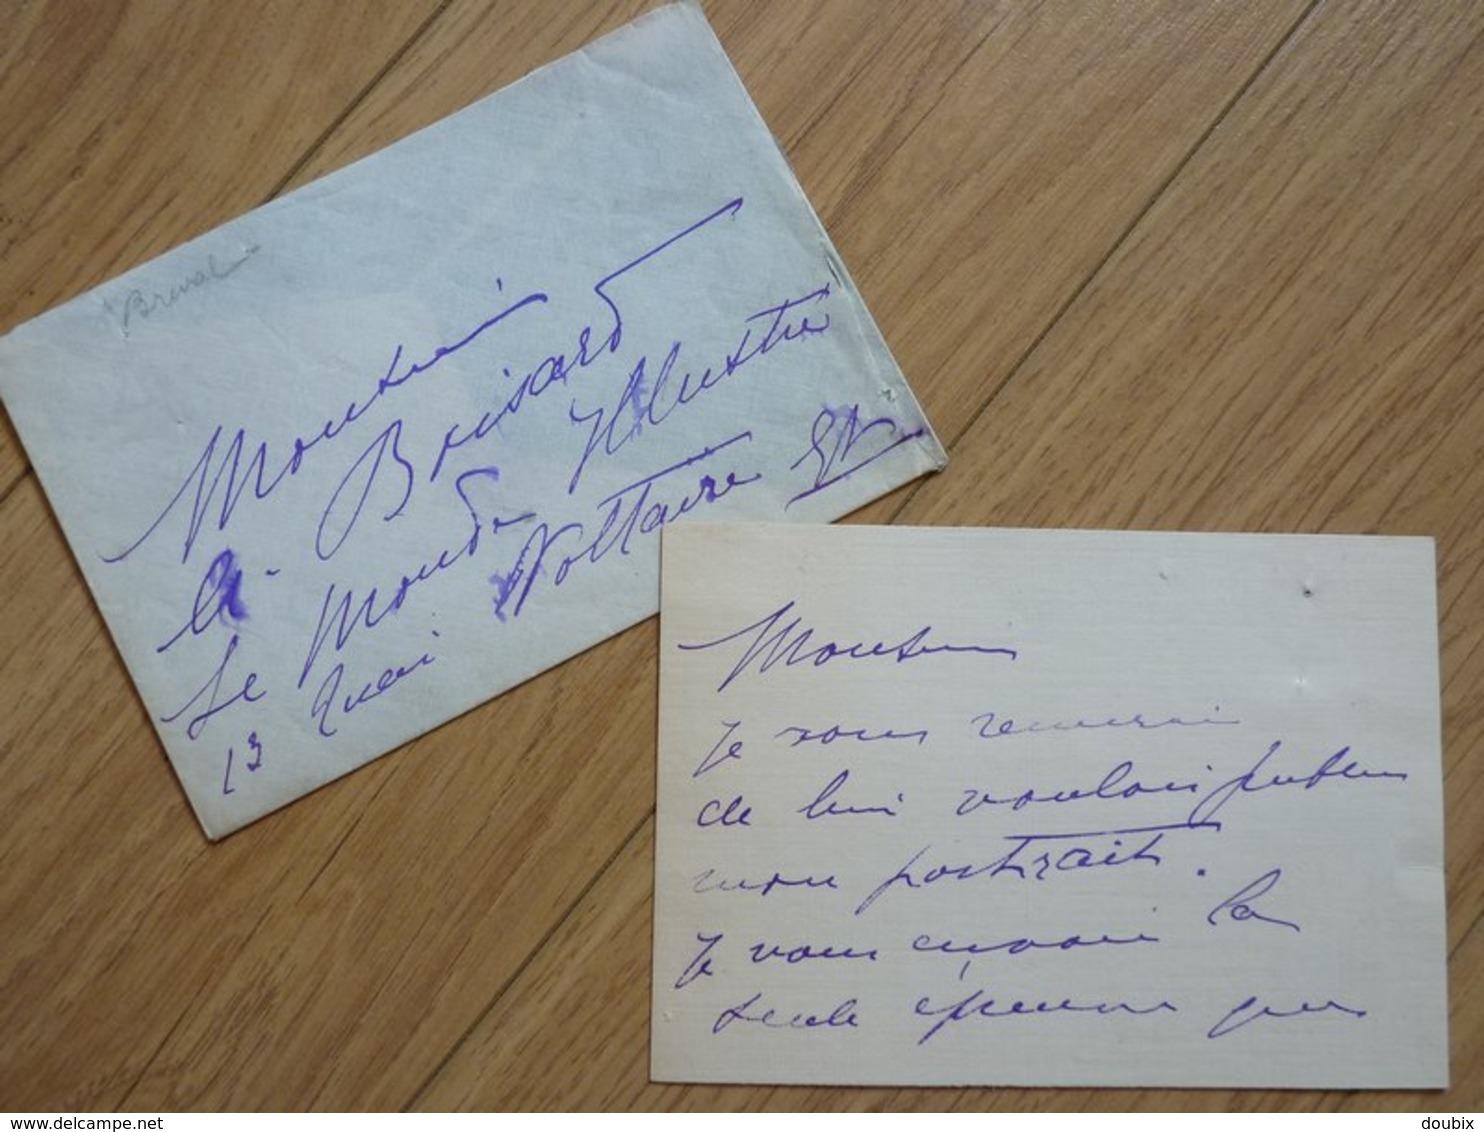 Breval
Monsieur
A. Brisard
Le Monde Illustré
13 Quai Voltaire
Monsieur
Je vous remercie
de bien vouloir publier
mon portrait.
Je vous envoie la
seule épreuve que
delcampe.net
doubix